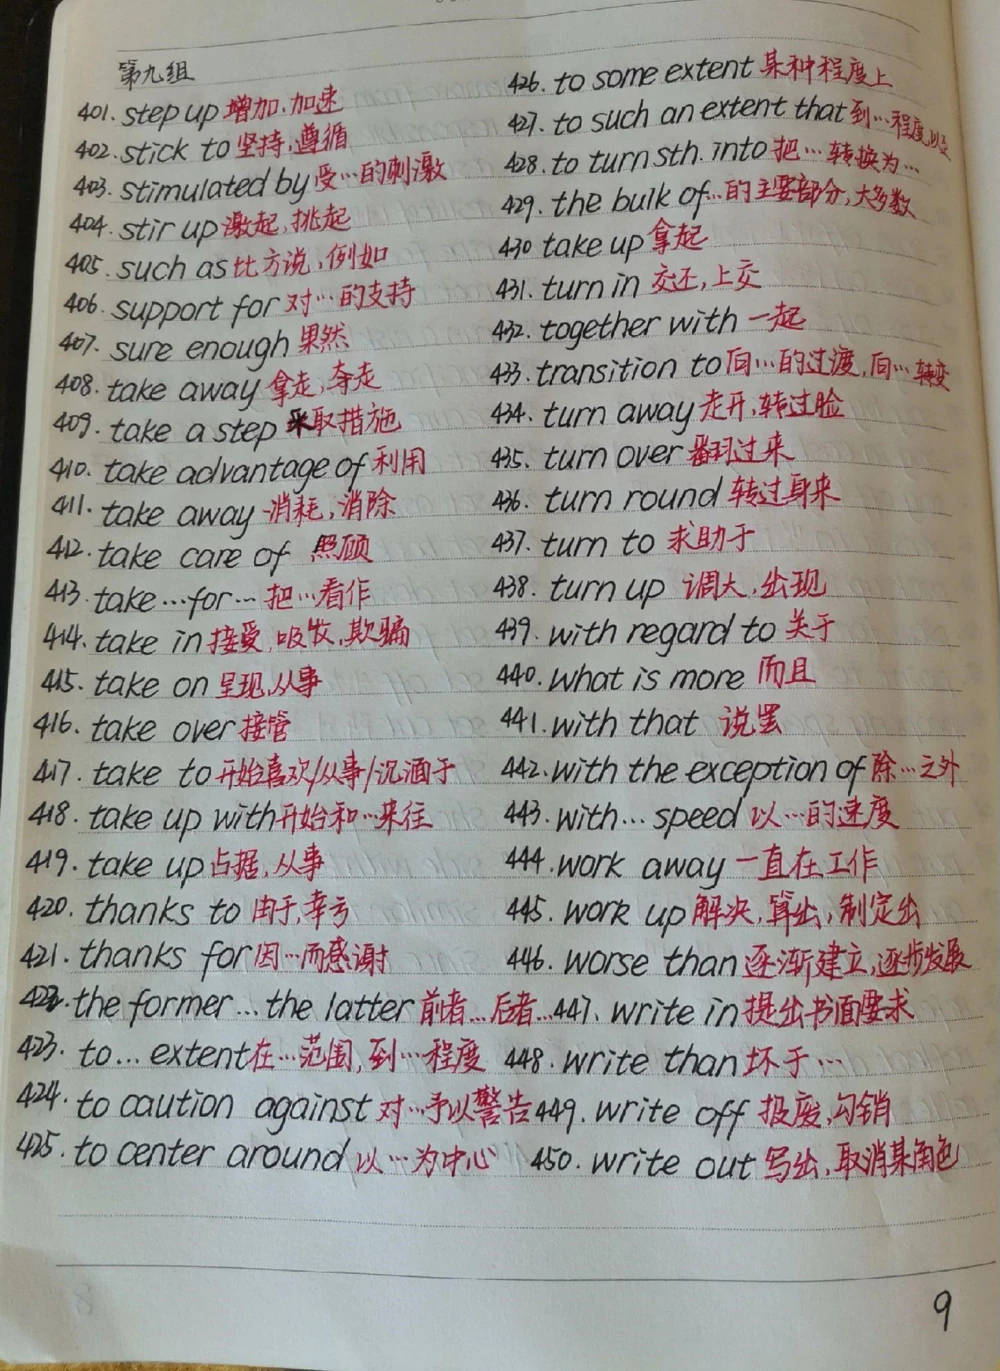 第九组
401. step up 增加.加速
402. stick to 坚持,遵循
403. stimulated by 受…的刺激
404. stir up 激起,挑起
405. such as 比方说,例如
406. support for 对…的支持
407. sure enough 果然
408. take away 拿走,夺走
409. take a step 采取措施
410. take advantage of 利用
411. take away 消耗,消除
412. take care of 照顾
413. take…for… 把…看作
414. take in 接受,吸收,欺骗
415. take on 呈现,从事
416. take over 接管
417. take to 开始喜欢/从事/沉湎于
418. take up with 开始和…来往
419. take up 占据,从事
420. thanks to 由于,幸亏
421. thanks for 因…而感谢
422. the former…the latter 前者…后者…
423. to…extent 在…范围,到…程度
424. to caution against 对…予以警告
425. to center around 以…为中心
426. to some extent 某种程度上
427. to such an extent that 到…程度,以致
428. to turn sth. into 把…转换为…
429. the bulk of …的主要部分,大多数
430 take up 拿起
431. turn in 交还,上交
432. together with 一起
433. transition to 向…的过渡,向…转变
434. turn away 走开,转过脸
435. turn over 翻过来
436. turn round 转过身来
437. turn to 求助于
438. turn up 调大,出现
439. with regard to 关于
440. what is more 而且
441. with that 说罢
442. with the exception of 除…之外
443. with…speed 以…的速度
444. work away 一直在工作
445. work up 解决,算出,制定出
446. worse than 逐渐建立,逐步发展
447. write in 提出书面要求
448. write than 坏于…
449. write off 报废,勾销
450. write out 写出,取消某角色
9